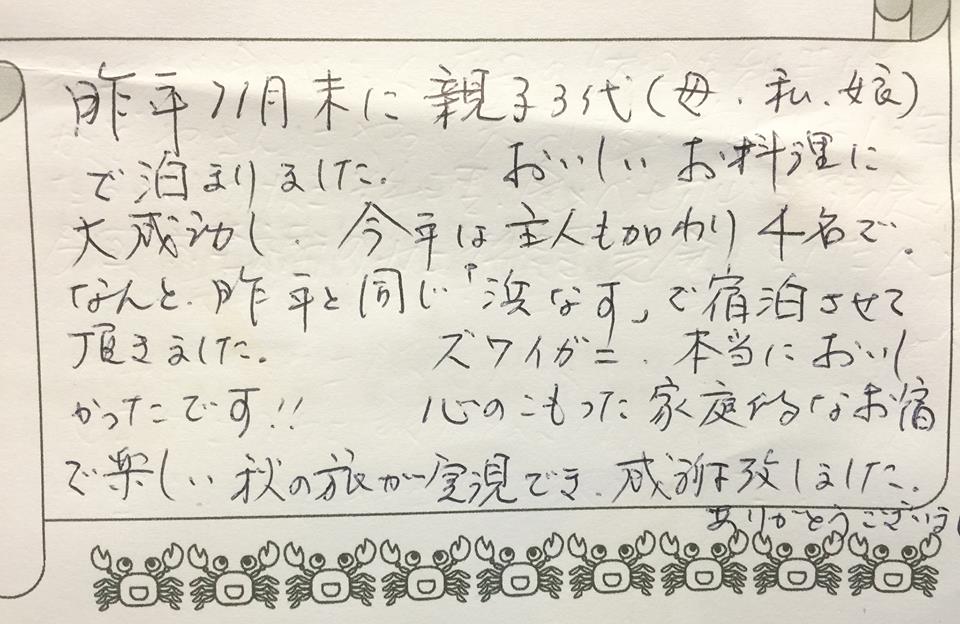 昨年11月末に親子3代(母、私、娘)
で泊まりました。 おいしいお料理に
大感動し、今年は主人も加わり4名で、
なんと、昨年と同じ「浜なす」で宿泊させて
頂きました。 ズワイガニ、本当においし
かったです!! 心のこもった家庭的なお宿
で楽しい秋の旅が実現でき、感謝致しました。
ありがとうございま